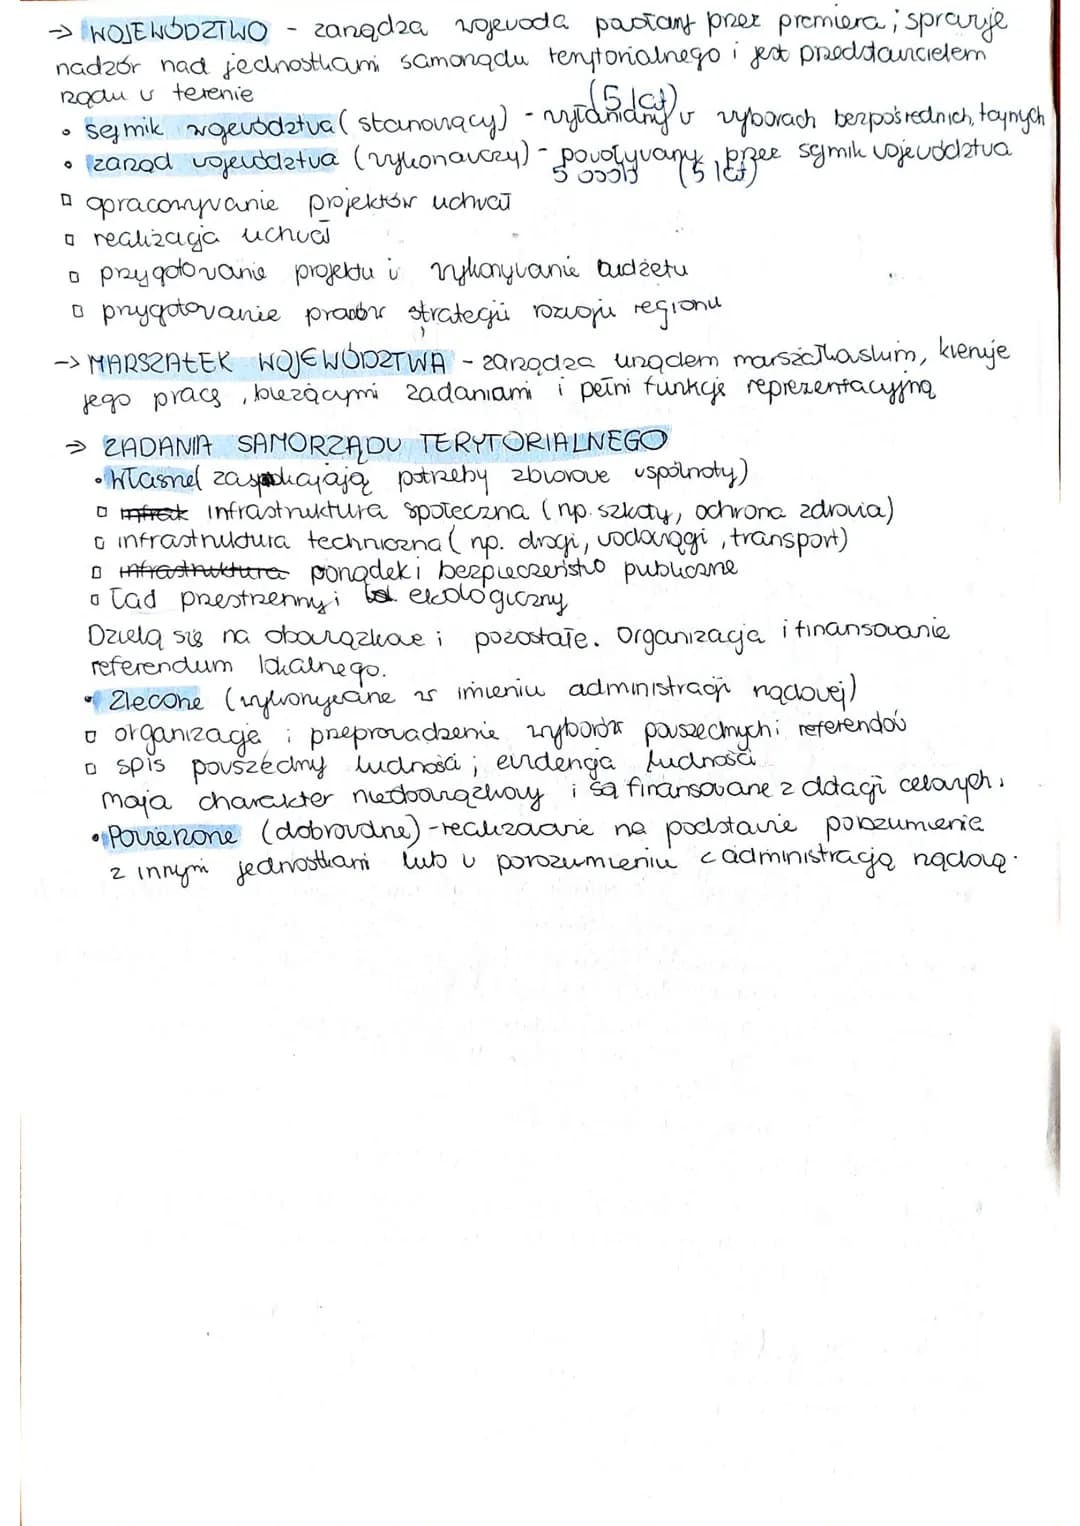 → WOJEWÓDZTWO - zarządza wojewoda powołany przez premiera; sprawuje
nadzór nad jednostkami samorządu terytorialnego i jest przedstawicielem
rządu w terenie
• sejmik województwa (stanowiący) - wyłaniany (5 lat) w wyborach bezpośrednich, tajnych
• zarząd województwa (wykonawczy) - powoływany przez sejmik województwa
5 osób (5 lat)
▫ opracowywanie projektów uchwał
▫ realizacja uchwał
▫ przygotowanie projektu i wykonywanie budżetu
▫ przygotowanie strategii rozwoju regionu
→ MARSZAŁEK WOJEWÓDZTWA - zarządza urzędem marszałkowskim, kieruje
jego pracą, bieżącymi zadaniami i pełni funkcję reprezentacyjną
⇒ ZADANIA SAMORZĄDU TERYTORIALNEGO
• Własne (zaspokajają potrzeby zbiorowe wspólnoty)
▫ infrastruktura społeczna (np. szkoły, ochrona zdrowia)
▫ infrastruktura techniczna (np. drogi, wodociągi, transport)
▫ infrastruktura porządek i bezpieczeństwo publiczne
▫ ład przestrzenny i ekologiczny
Dzielą się na obowiązkowe i pozostałe. Organizacja i finansowanie
referendum lokalnego.
• Zlecone (wykonywane w imieniu administracji rządowej)
▫ organizacja i przeprowadzenie wyborów powszechnych i referendów
▫ spis powszechny ludności; ewidencja ludności
mają charakter nieobowiązkowy i są finansowane z dotacji celowych.
• Powierzone (dobrowolne) - realizowane na podstawie porozumienia
z innymi jednostkami lub w porozumieniu z administracją rządową.